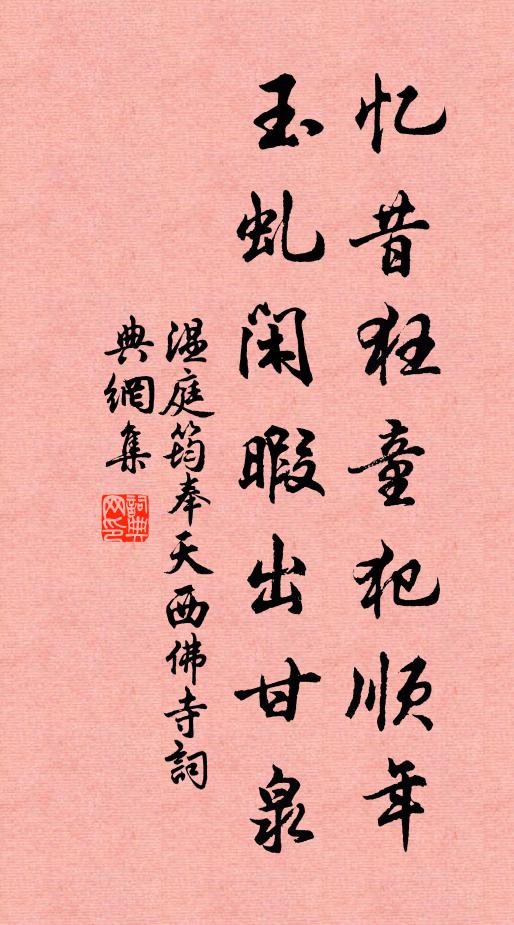 忆昔狂童犯顺年
玉虬闲暇出甘泉
温庭筠奉天西佛寺詞
典網集
詞典网印